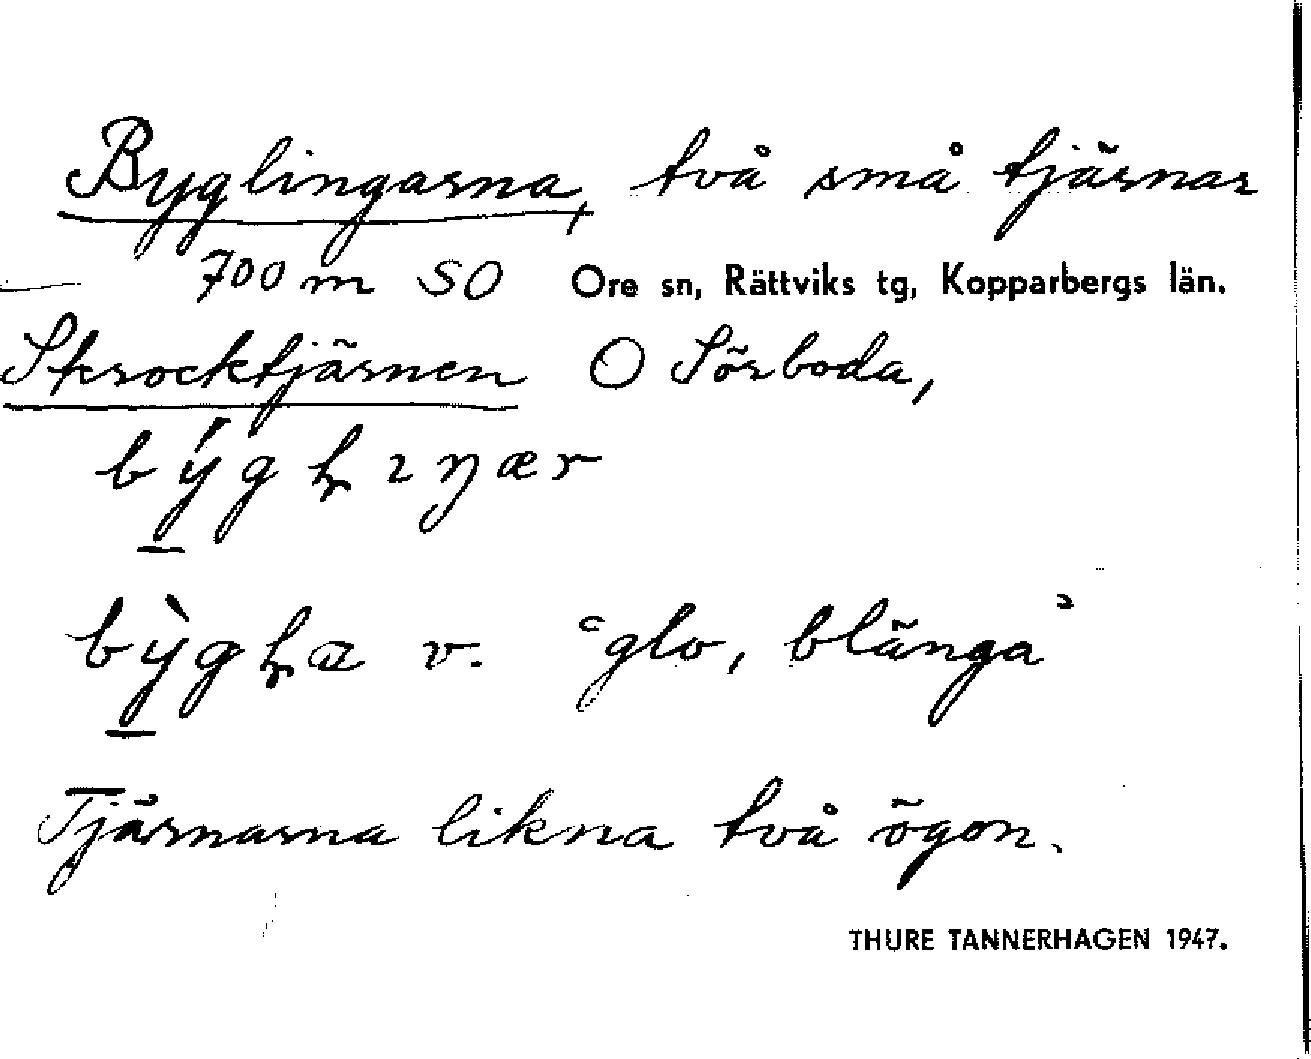 Byglingarna, två små tjärnar
700 m SO Ore sn, Rättviks tg, Kopparbergs län.
Skrocktjärnen O Sörboda,
v. "glo, blänga"
Tjärnarna likna två ögon.
THURE TANNERHAGEN 1947.